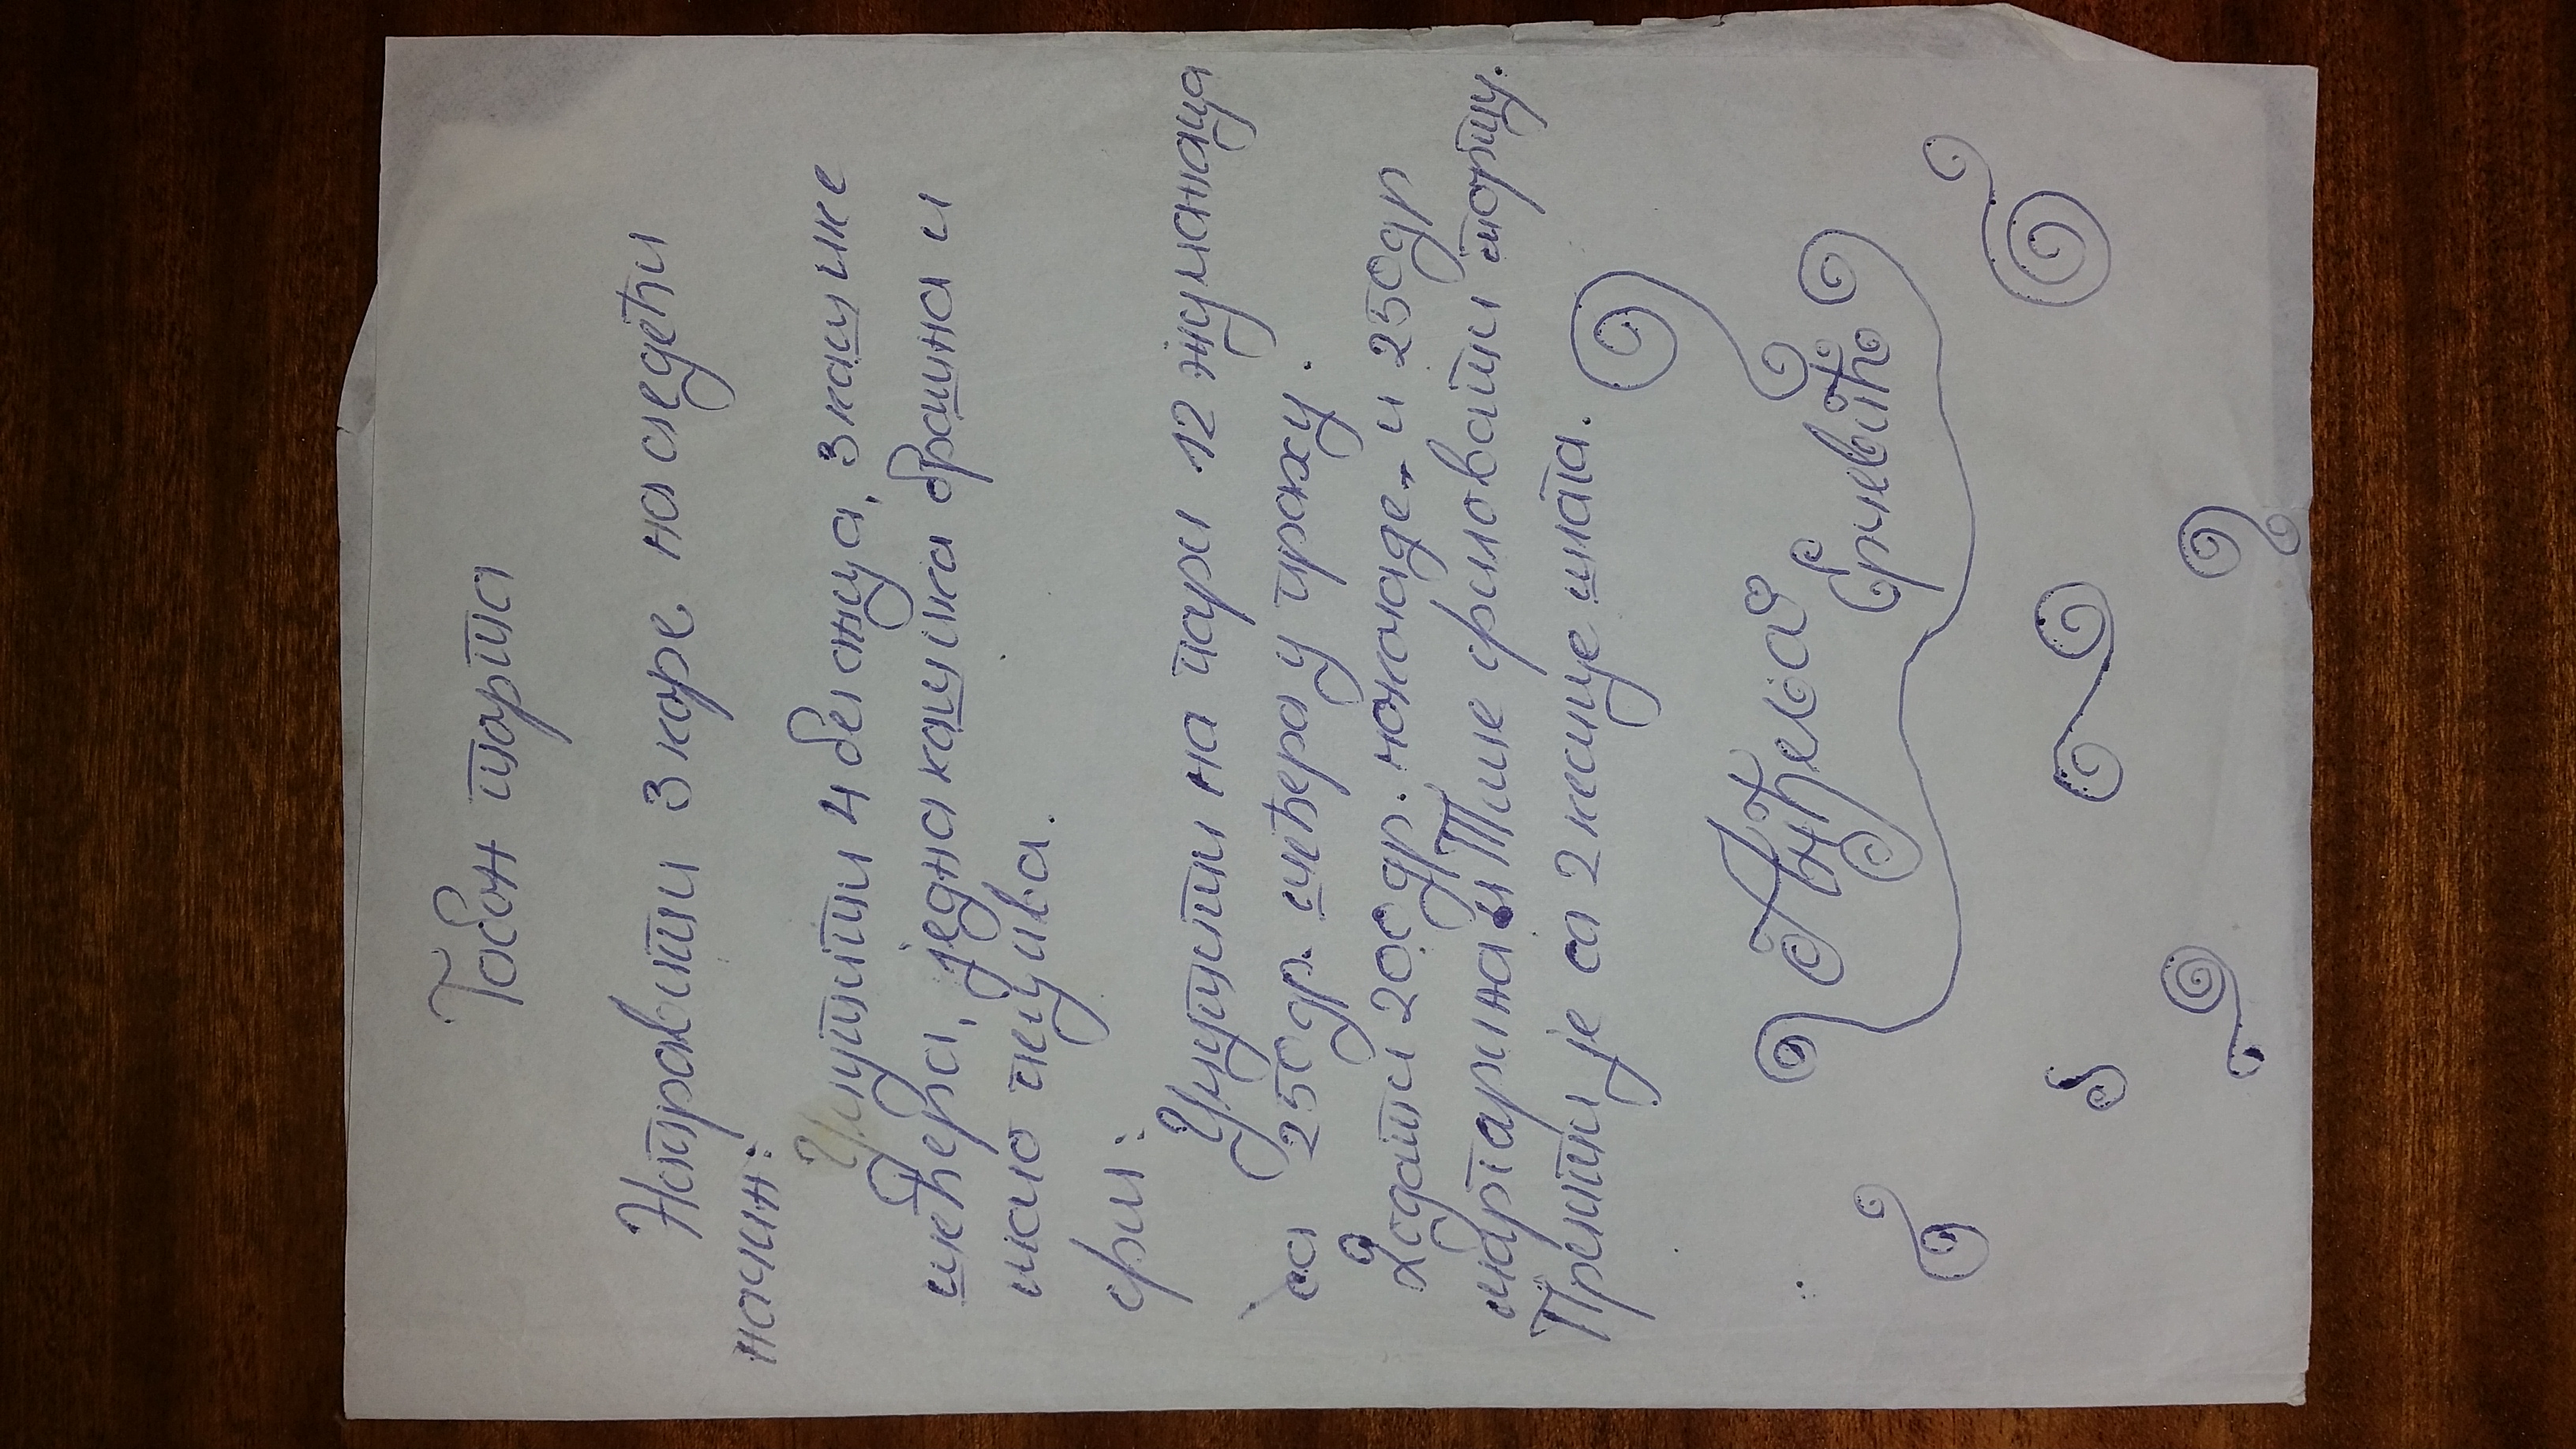 Тобон торта
Направити 3 коре на следећи
начин:
Умутити 4 беланца, 3 кашике
шећера, једна кашика брашна и
мало пецива.
фил:
Умутити на пари 12 жуманаца
са 250 гр. шећера у праху.
Додати 200 гр. чоколаде и 250 гр
маргарина и Тиме филовати торту.
Прелити је са 2 кесице шлага.
Анђела
Ерчевић